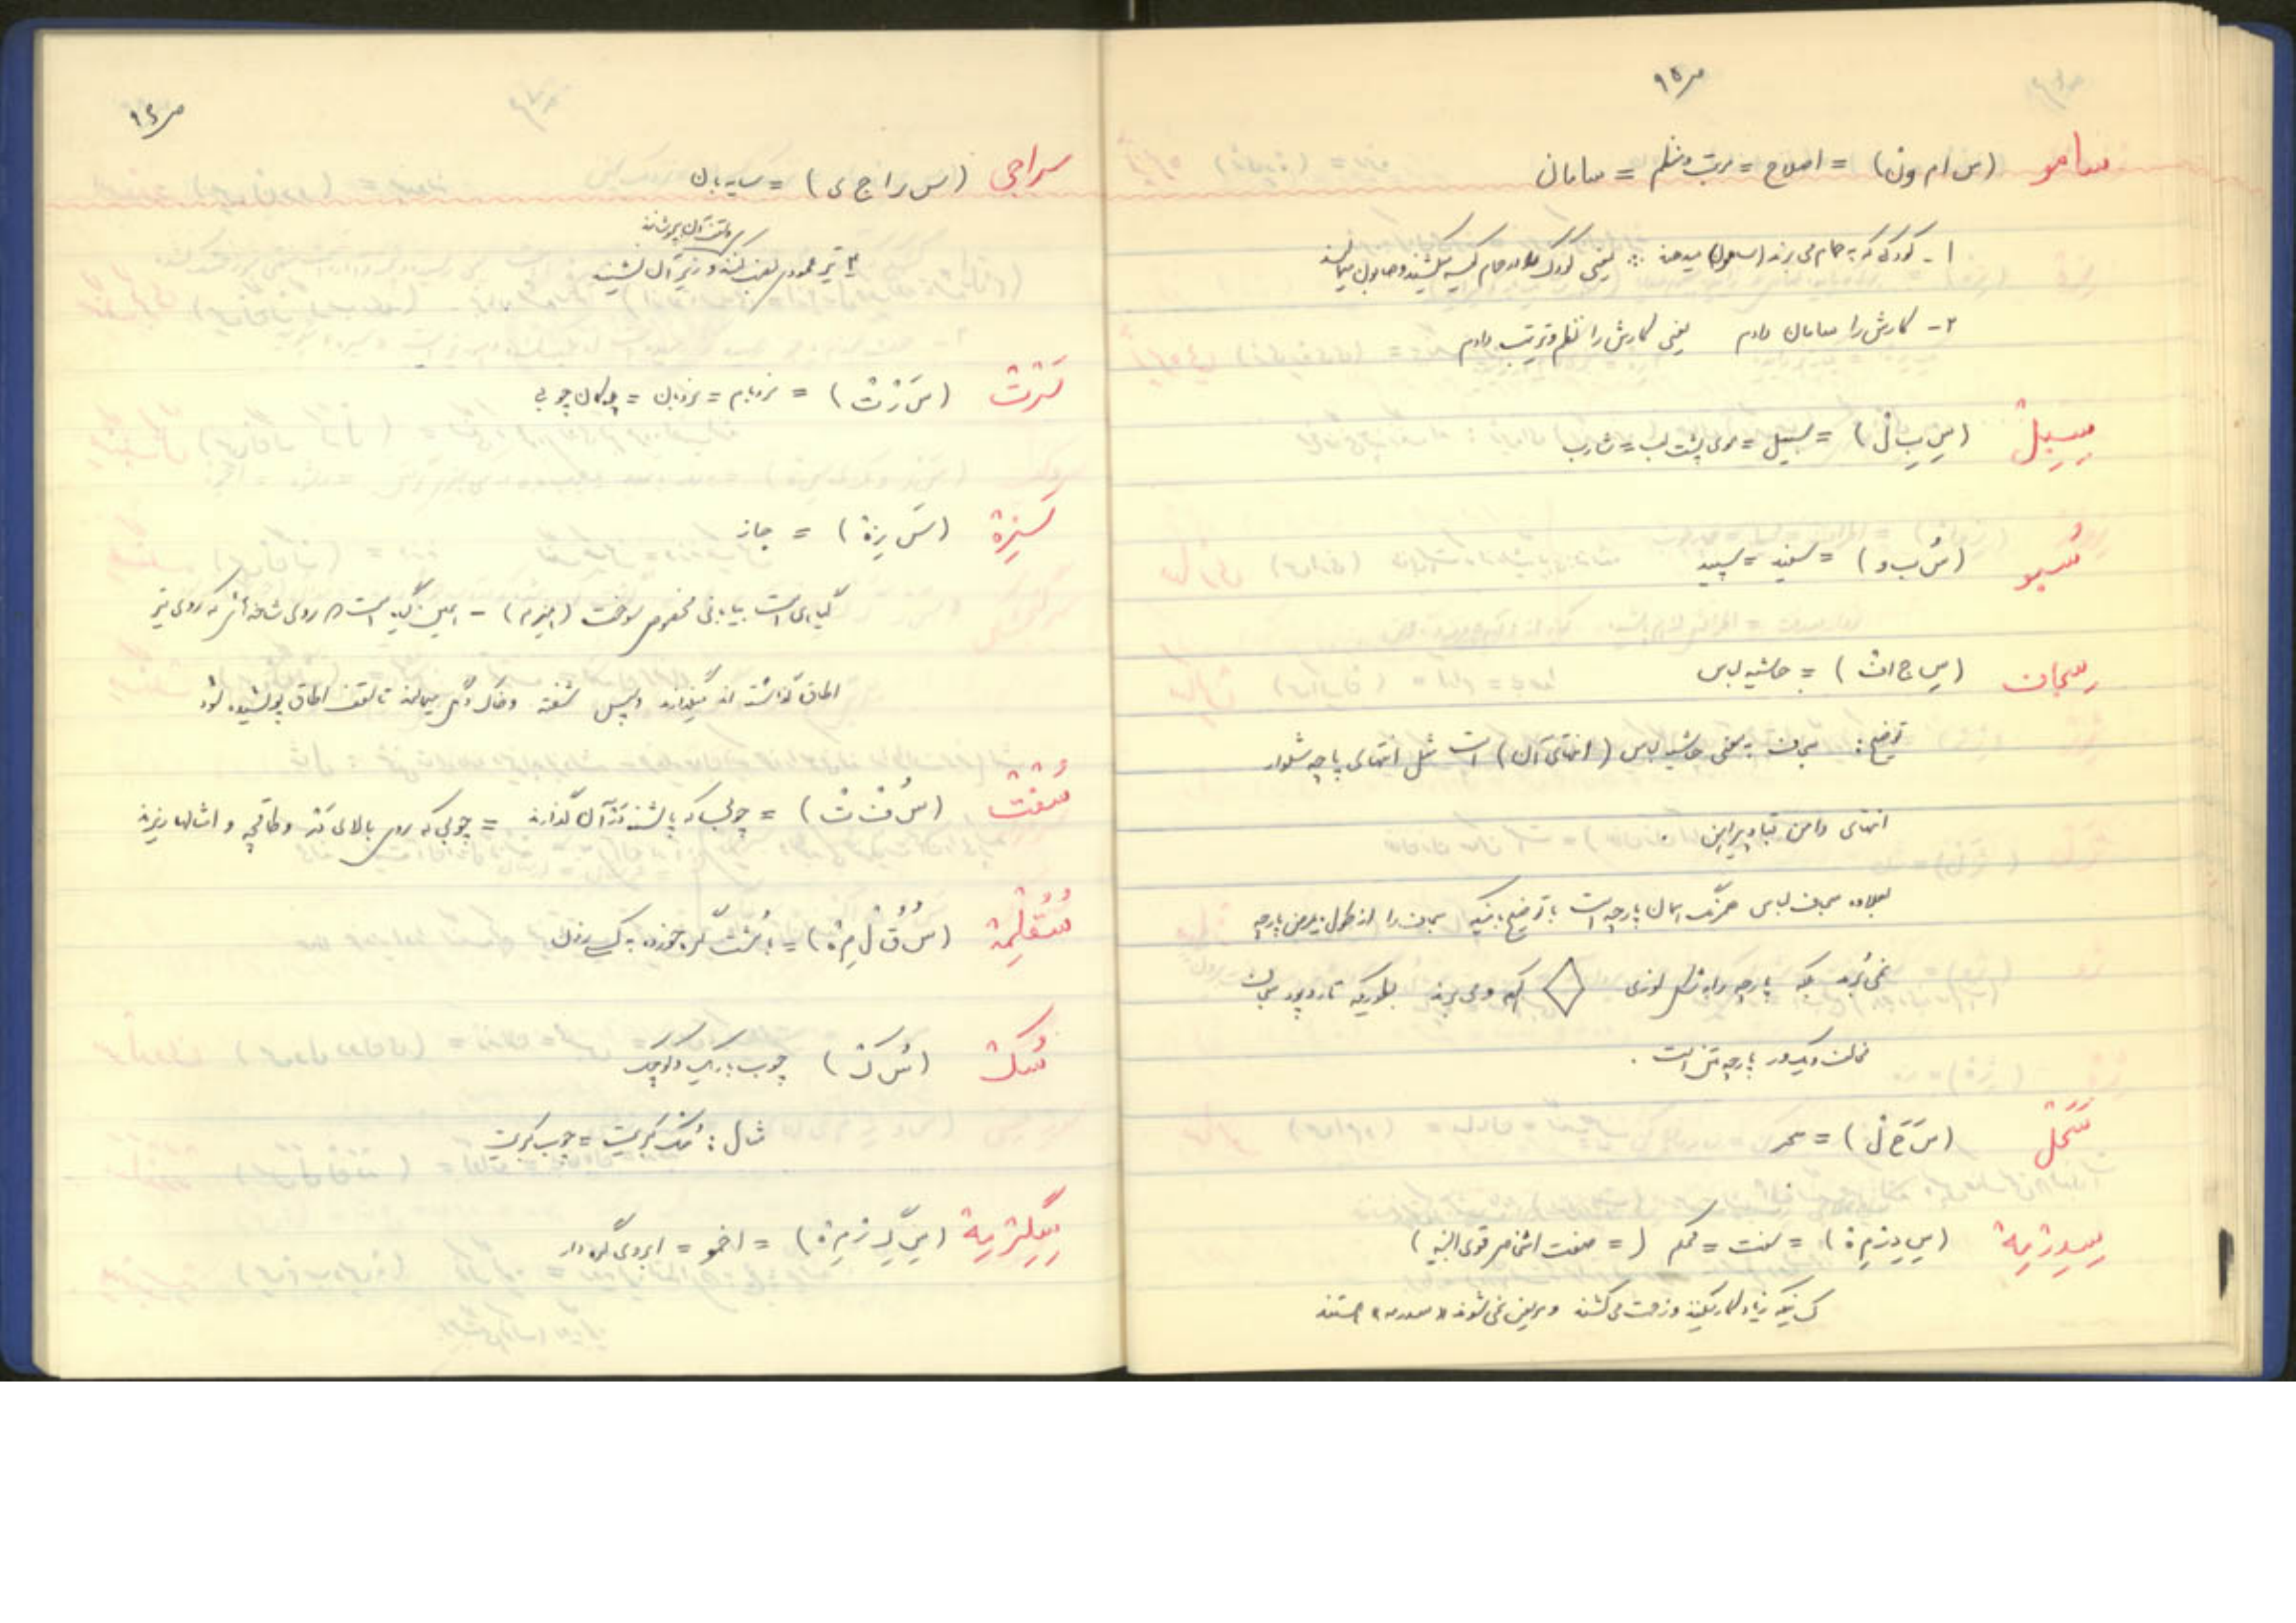 ص ۹۵
سامو (س ا م و ن) = اصلاح = مرتب و منظم = سامان
۱ - کودکی که به حمام می برند (سامو) میدهند :: یعنی کودک را در حمام کیسه میکشند و صابون میمالند
۲ - کارش را سامان دادم یعنی کارش را نظم و ترتیب دادم
سِیِبلْ (سِ یِ ب لْ) = سبیل = موی پشت لب = شارب
سُبو (سُ ب و) = سفید = سپید
سِجان (سِ ج ان) = حاشیه لباس
توضیح: سجان به معنی حاشیه لباس (انتهای آن) است مثل انتهای پاچه شلوار
انتهای دامن قبا و پیراهن .
بعلاوه سجان لباس همرنگ همان پارچه است با توضیح باینکه سجان را از طول یا عرض پارچه
نمی بُرند بلکه پارچه را به شکل لوزی می برند بطوریکه تار و پود سجان
مخالف یکدور پارچه متن است .
سَحَلْ (سَ حَ لْ) = سحر
سِیدِزِمِهْ (سِ ی دِ زِ مِ هْ) = سفت = محکم ( = صفت اشخاص قوی البنیه )
کسانیکه زیاد کار میکنند و زحمت می کشند و مریض نمی شوند «سیدزمه» هستند
ص ۹۶
سراجی (س ر ا ج ی) = سایه بان
و سقف آن را بپوشانند
۴ تیر عمودی نصب کنند و زیر آن نشینند
سَرْتْ (سَ رْ تْ) = نردبام = نردبان = پلکان چوبی
سَرِزهْ (سَ رِ زهْ) = جاز
گیاهی است بیابانی مخصوص سوخت (هیزم) - همین گیاه است که روی شاخه هائی که روی تیر
اطاق گذاشته اند میگذارند و سپس شفته و خاک و گل میمالند تا سقف اطاق پوشیده شود
سُفتْ (سُ فْ تْ) = چوبی که پاشنه در آن گذارند = چوبی که روی بالای در و طاقچه و امثالها ریزند
سُقُلْمِهْ (سُ قُ لْ مِ هْ) = با مُشت گره خورده به کسی زدن
سُکْ (سُ کْ) چوب باریک و کوچک
مثال : سُک کبریت = چوب کبریت
سِگِرْزِمِهْ (سِ گِ رْ زِ مِ هْ) = اخمو = ابروی گره دار